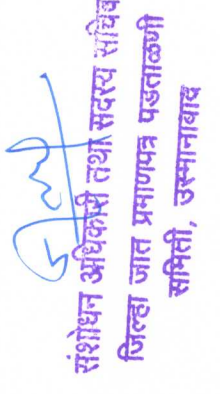 संशोधन अधिकारी तथा सदस्य सचिव
जिल्हा जात प्रमाणपत्र पडताळणी
समिती, उस्मानाबाद